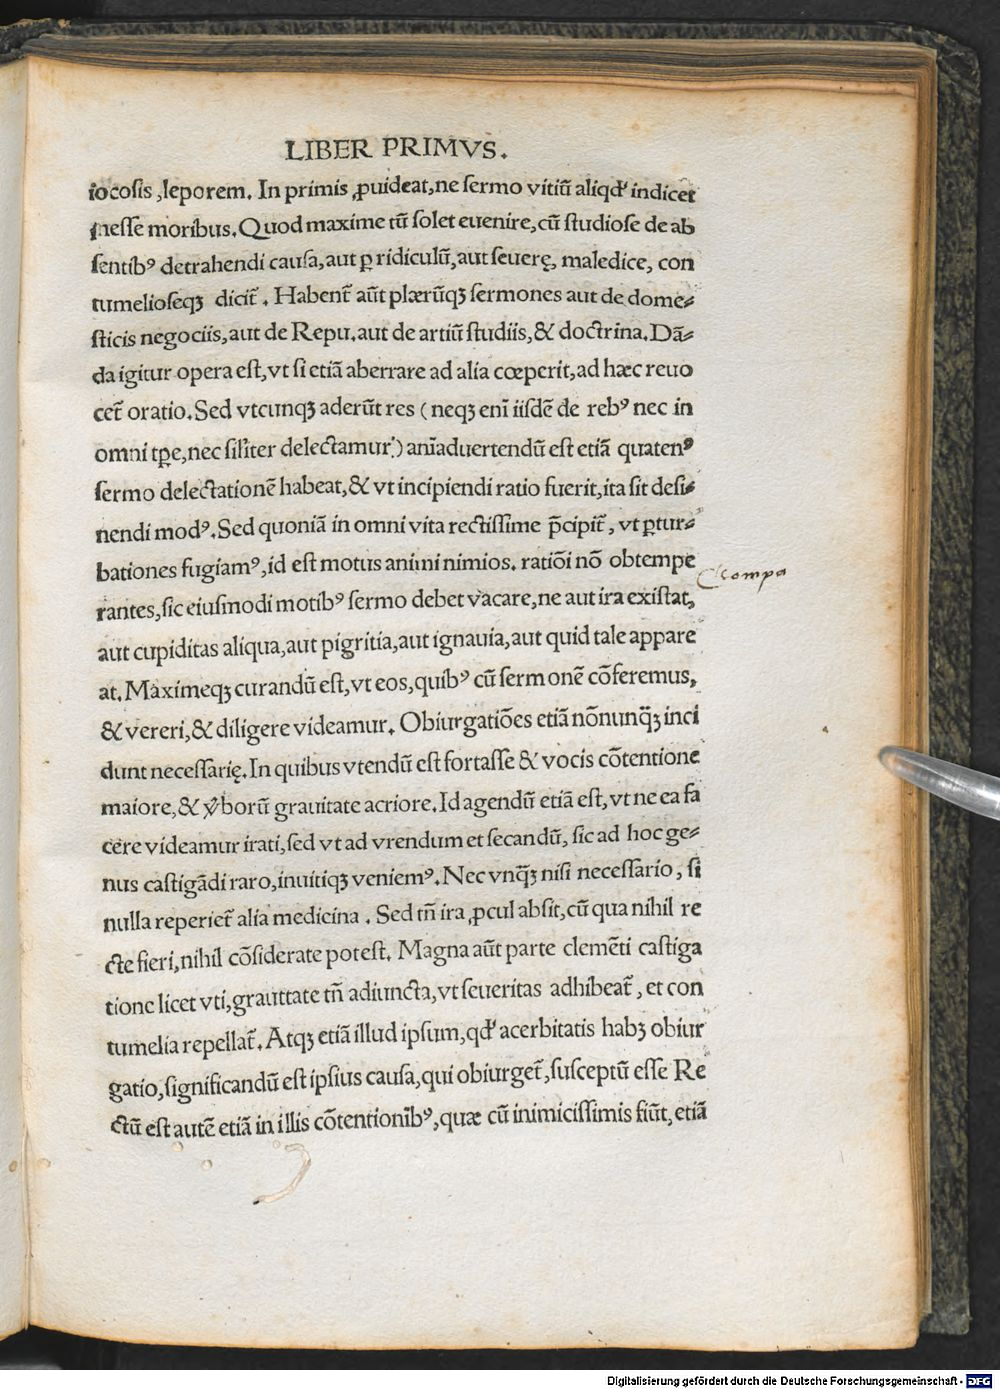 LIBER PRIMVS.
iocosis, leporem. In primis ꝓuideat, ne sermo vitiū aliqđ indicet
inesse moribus. Quod maxime tū solet euenire, cū studiose de ab
sentibꝰ detrahendi causa, aut ꝑ ridiculū, aut seuerę, maledice, con
tumelioseqꝫ dicit̄. Habent̄ aūt plærūqꝫ sermones aut de dome⸗
sticis negociis, aut de Repu. aut de artiū studiis, & doctrina. Dā⸗
da igitur opera est, vt si etiā aberrare ad alia cœperit, ad hæc reuo
cet̄ oratio. Sed vtcunqꝫ aderūt res (neqꝫ enī iisdē de rebꝰ nec in
omni tꝑe, nec sil̄iter delectamur.) anīaduertendū est etiā quatenꝰ
sermo delectationē habeat, & vt incipiendi ratio fuerit, ita sit desi⸗
nendi modꝰ. Sed quoniā in omni vita rectissime p̄cipit̄, vt ꝑtur⸗
bationes fugiamꝰ, id est motus animi nimios. ratiōi nō obtempe
rantes, sic eiusmodi motibꝰ sermo debet vacare, ne aut ira existat,
aut cupiditas aliqua, aut pigritia, aut ignauia, aut quid tale appare
at. Maximeqꝫ curandū est, vt eos, quibꝰ cū sermonē cōferemus,
& vereri, & diligere videamur. Obiurgatiōes etiā nōnunq̄ꝫ inci
dunt necessarię. In quibus vtendū est fortasse & vocis cōtentione
maiore, & ꝟborū grauitate acriore. Id agendū etiā est, vt ne ea fa
cere videamur irati, sed vt ad vrendum et secandū, sic ad hoc ge⸗
nus castigādi raro, inuitiqꝫ veniemꝰ. Nec vnq̄ꝫ nisi necessario, si
nulla reperiet̄ alia medicina. Sed tn̄ ira ꝓcul absit, cū qua nihil re
cte fieri, nihil cōsiderate potest. Magna aūt parte clemēti castiga
tione licet vti, grauttate tn̄ adiuncta, vt seueritas adhibeat̄, et con
tumelia repellat̄. Atqꝫ etiā illud ipsum, qđ acerbitatis habꝫ obiur
gatio, significandū est ipsius causa, qui obiurget̄, susceptū esse Re
ctū est autē etiā in illis cōtentionibꝰ, quæ cū inimicissimis fiūt, etiā
Digitalisierung gefördert durch die Deutsche Forschungsgemeinschaft - DFG